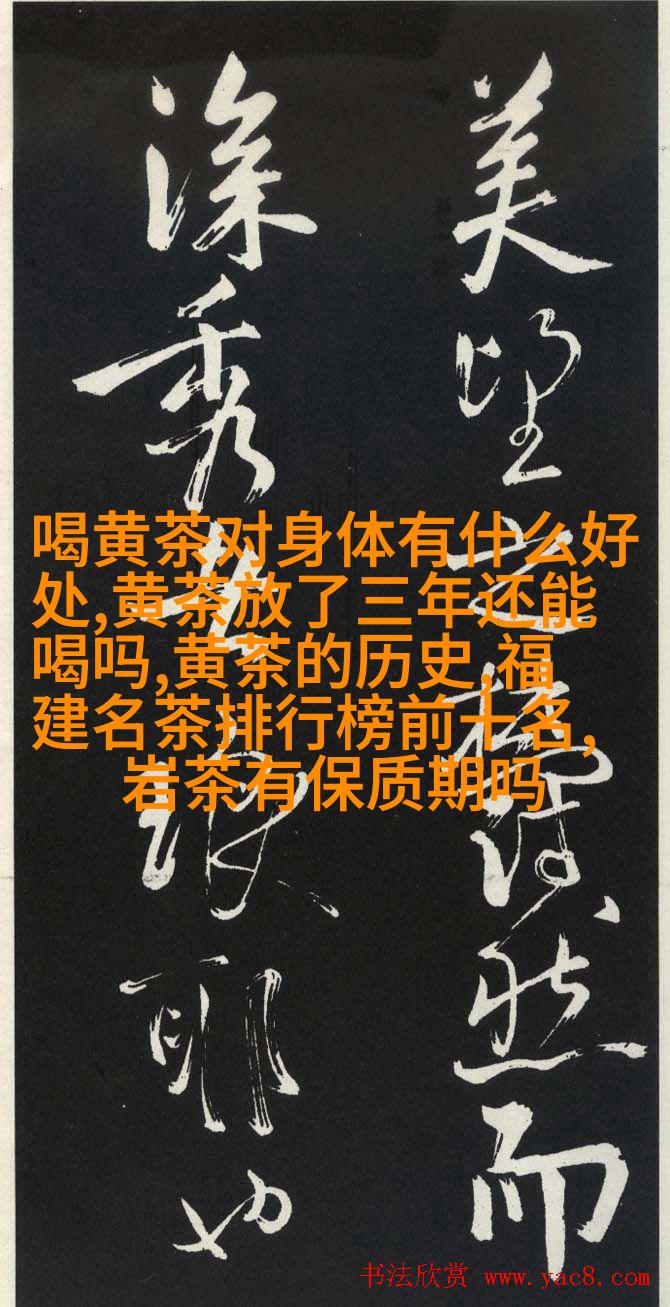 美望之蔚然而
深秀者琅耶也
喝黄茶对身体有什么好
处,黄茶放了三年还能
喝吗,黄茶的历史,福
建名茶排行榜前十名,
岩茶有保质期吗
书法欣赏 www.yac8.com